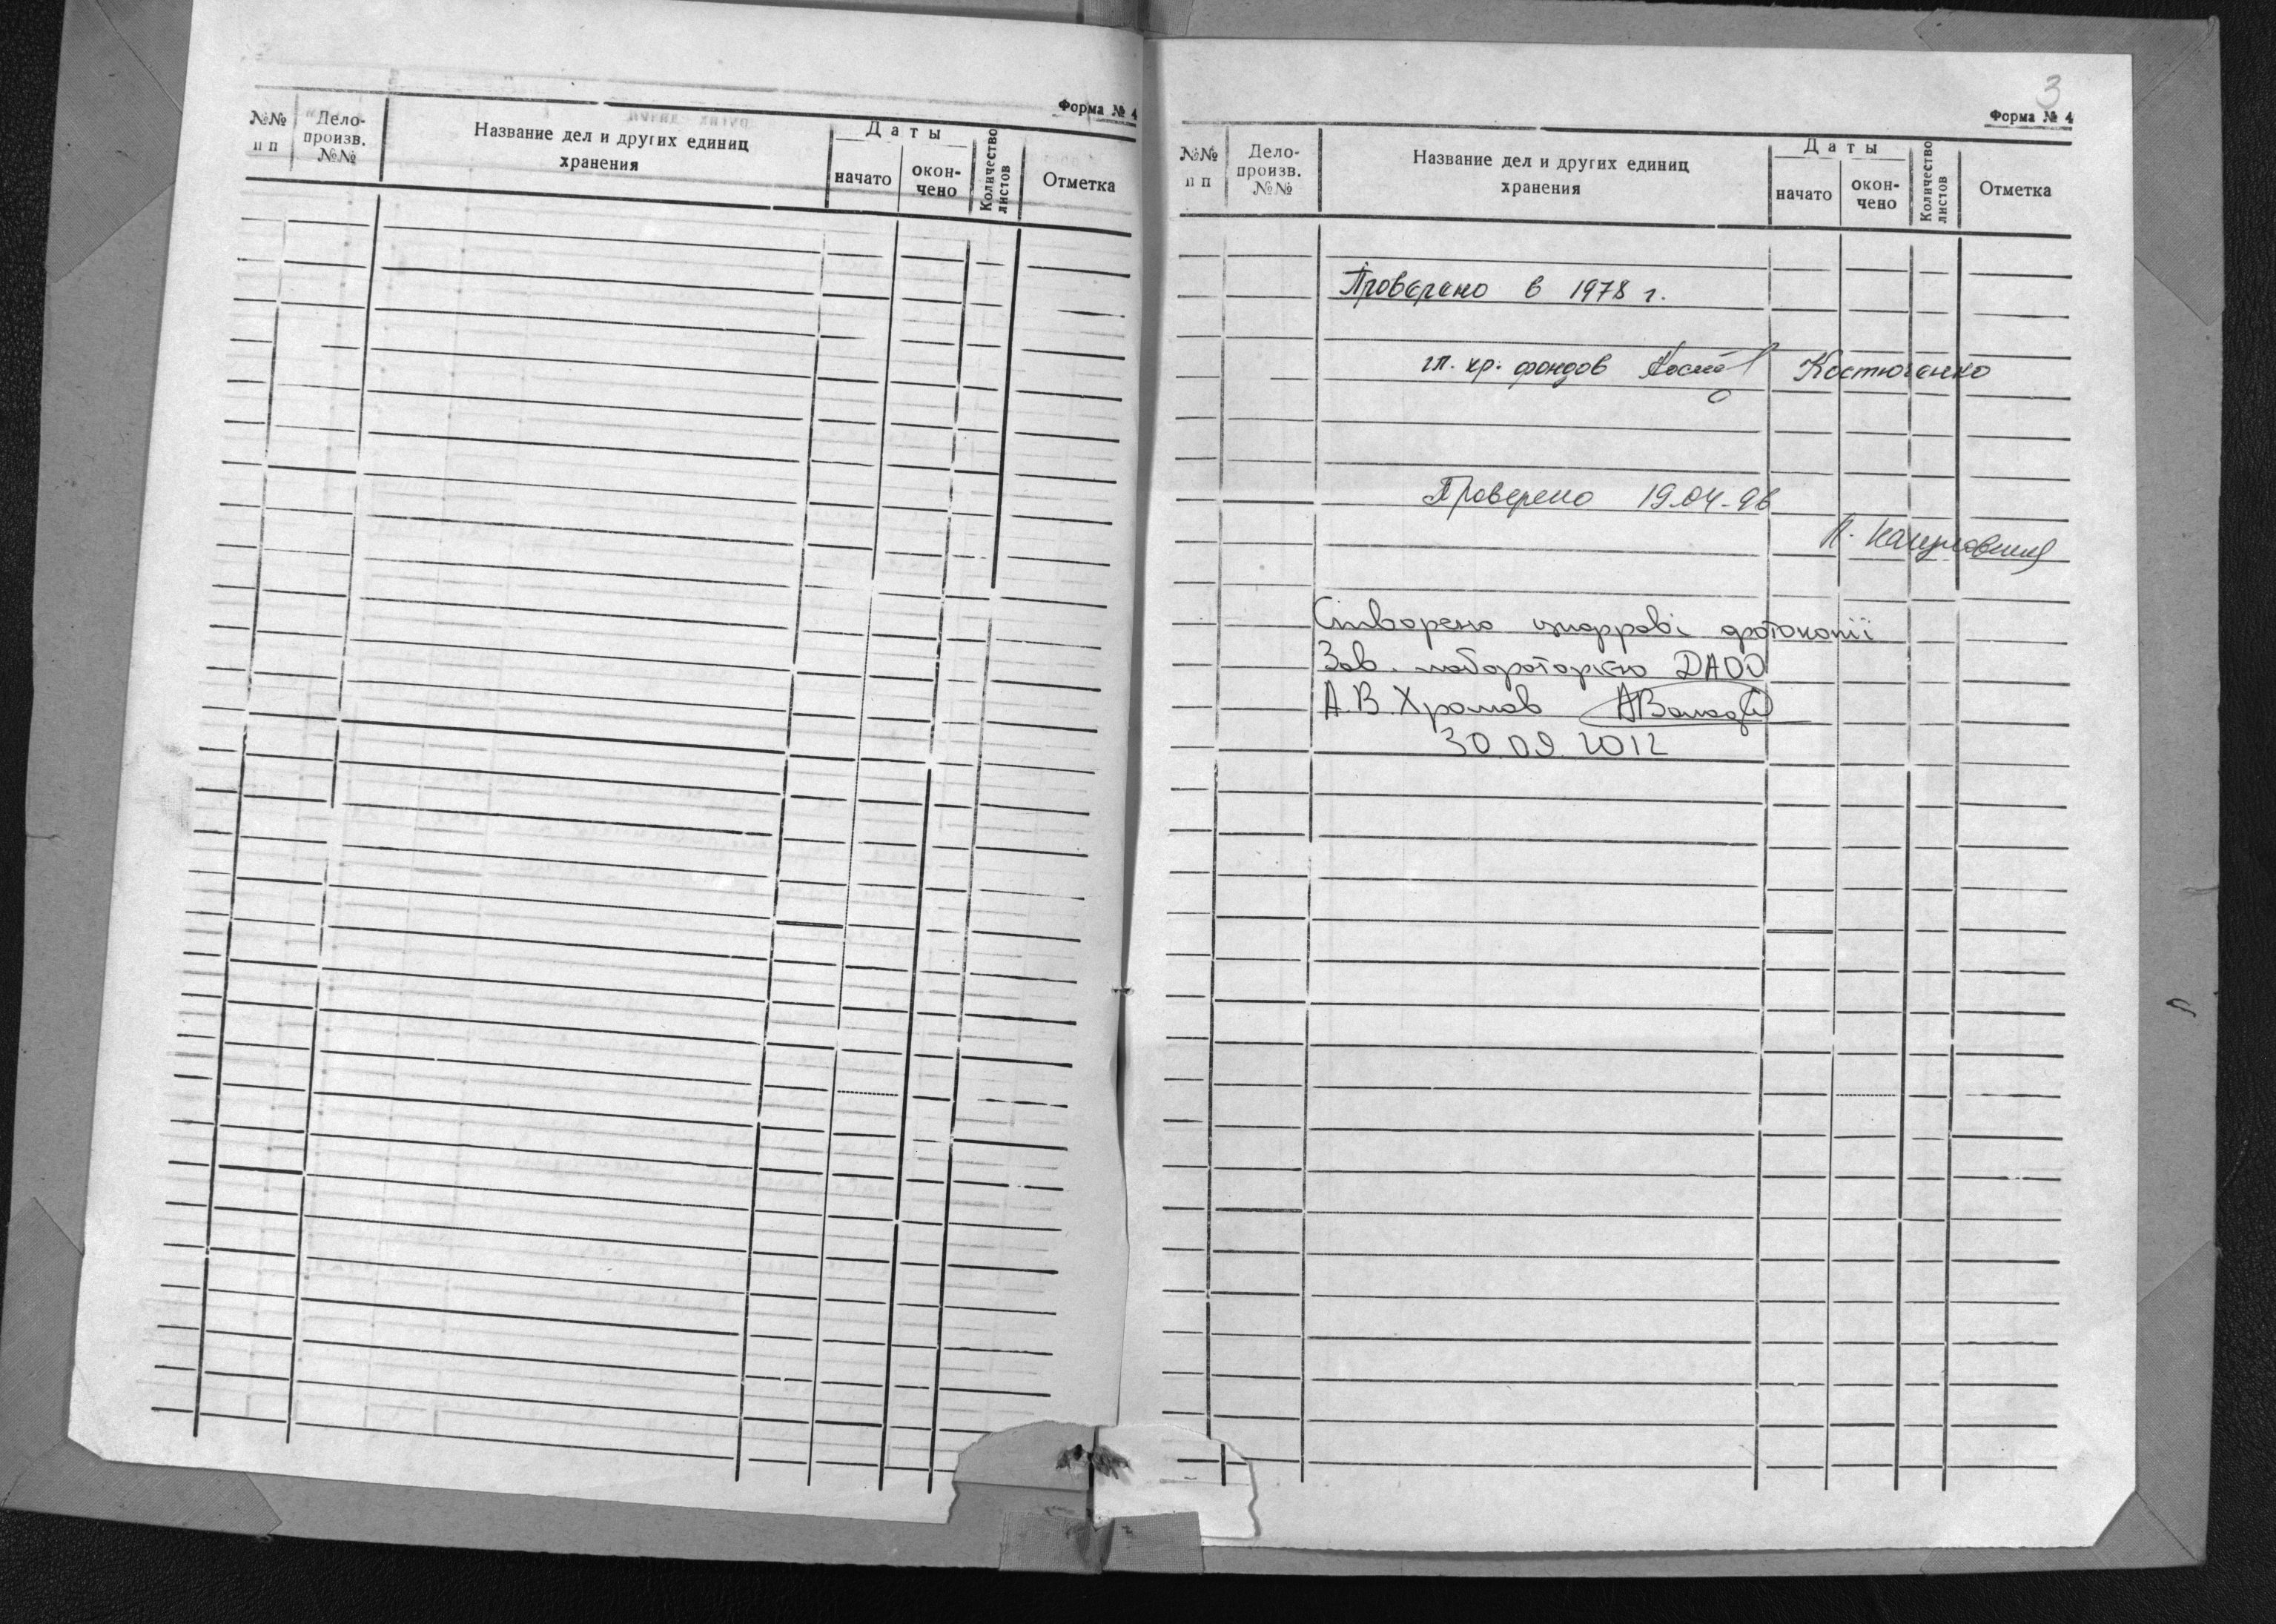 Форма № 4
№№ п п
Дело-
произв.
№№
Название дел и других единиц
хранения
Даты
начато
окон-
чено
Количество
листов
Отметка
3
Форма № 4
№№ п п
Дело-
произв.
№№
Название дел и других единиц
хранения
Даты
начато
окон-
чено
Количество
листов
Отметка
Проверено в 1978 г.
гл. хр. фондов Костюченко
Проверено 19.04.96
Створено цифрові фотокопії
Зав. лабораторією ДАОО
А.В. Хромов
30.09.2012